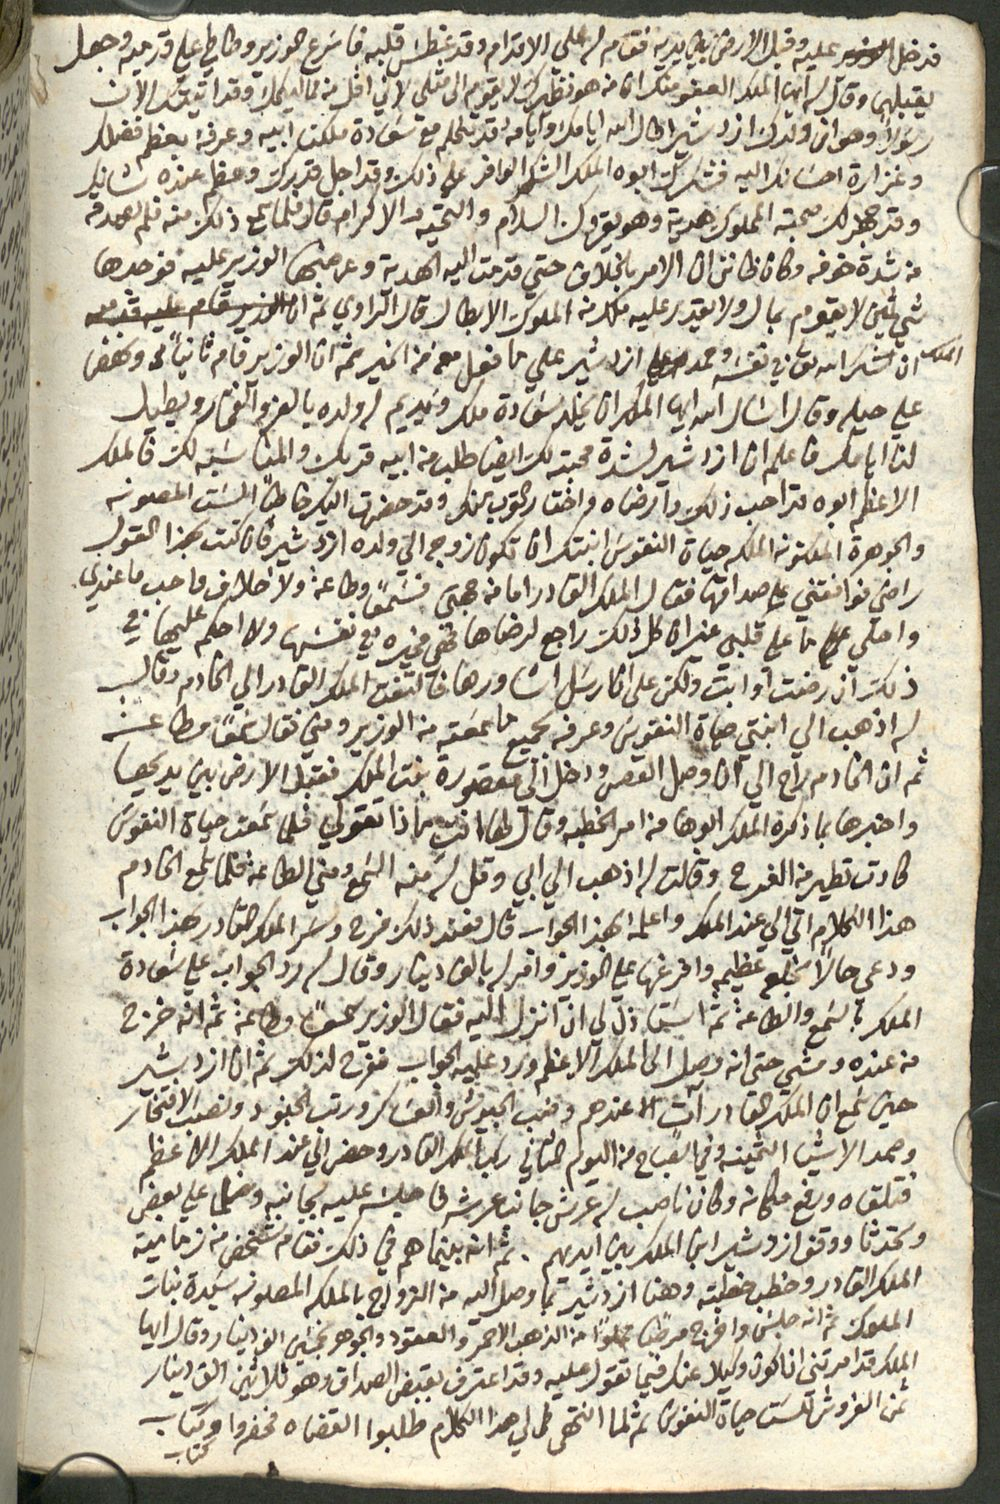 فدخل عليه وقبل الارض بين يديه فقام له على الاقدام وقد غطس قلبه فاسرع الوزير وطاطي على قدميه وجعل
يقبلهم وقال له ايها الملك العفو منك ان من هو نظيرك لا يقوم الى مثلي لاني اقل من مماليكك وقد اتيتك الان
رسولاً وهو ان ولدك ازدشير اطال الله ايامك وايامه قد تكلم مع سعادة ملكنا ابيه وعرفه بعظم فضلك
وغزارة احسانك اليه فشكرك ابوه الملك الشكر الوافر على ذلك وقد اجل قدرك وعظم عنده شانك
وقد جهز لك صحبة المملوك هدية وهو يقريك السلام والتحيه والاكرام قال فلما سمع ذلك منه فلم يصدقه
من شدة خوفه وكان ظانن ان الامر بخلاف حتى قدمت اليه الهدية وعرضها الوزير عليه فوجدها
شي ثمين لا يقوم بمال ولا يقدر عليه ملك من الملوك الابطال قال الراوي ثم ان
الملك ان شكر الله تعالى في نفسه وحمد ازدشير على ما فعل معه من الخير ثم ان الوزير قام ثانياً ونهض
على حيله وقال اسال الله ايها الملك ان يخلد سعادة ملكك ويديم له ولده بالعز والفخار ويطيل
لنا ايامك فاعلم ان ازدشير لشدة محبته لك ايضا طلب من ابيه قربك والمناسبه لك فالملك
الاعظم ابوه قد احب ذلك وارضاه واختار القرب منك وقد حضرت اليك خاطباً الست المصونه
والجوهرة المكنونه الملكه حياة النفوس ابنتك ان تكون زوجه الى ولده ازدشير فان كنت بهذا القول
راضي فوافقني على صداقها فقال الملك القادر اما من جهتي فسمعاً وطاعة ولا خلاف فاحب ما عندي
واحلي ما على قلبي غير ان كل ذلك راجع لرضاها فهي مخيره في نفسها ولا احكم عليها في
ذلك ان رضت او ابت ولكن على ان ارسل اشاورها فالتفت الملك القادر الى الخادم وقال
له اذهب الى ابنتي حياة النفوس وعرفها بجميع ما سمعته من الوزير ومني فقال سمعاً وطاعة
ثم ان الخادم راح الى ان وصل القصر ودخل الى مقصورة بنت الملك فقبل الارض بين يديها
واخبرها بما ذكره الملك ابوها من امر الخطبه وقال لها انتي ماذا تقولي فلما سمعت حياة النفوس
كادت تطير من الفرح وقالت له اذهب الى ابي وقل له منه السمع ومني الطاعة فلما سمع الخادم
هذا الكلام اتى الى عند الملك واعلمه بهذا الجواب قال فعند ذلك فرح وسر الملك القادر بهذا الجواب
ودعى حالاً بخلع عظيمه وافرغها على الوزير وامر له بالف دينار وقال له رد الجواب على سعادة
الملك بالسمع والطاعة ثم استاذن لي ان انزل اليه فقال الوزير سمعاً وطاعة ثم انه خرج
من عنده ومشي حتى انه وصل الى الملك الاعظم ورد عليه الجواب ففرح لذلك ثم ان ازدشير
حين سمع ان الملك القادر آت الى عندهم وصف الجيوش والعساكر ورتب الجنود ونصب الافتخار
وصمد الاشيا الثمينه وفي الصباح من اليوم الثاني ركب الملك القادر وحضر الى عند الملك الاعظم
فتلقاه ورفع مكانه وكان ناصب له عرش جانب عرشه فاجلسه عليه بجانبه وسلما على بعض
وتحدثا ووقف ازدشير ابن الملك بين ايديهم . ثم انه بينما هم في ذلك فقام شخص من زمامية
الملك القادر وخطب خطبته وهنا ازدشير بما وصل اليه من الزواج بالملكه المصونه سيدة بنات
الملوك ثم انه جلس واخرج مملواً من الذهب الاحمر والعقود والجوهر بخمسين الف دينار وقال ايها
الملك قد امرتني ان اكون وكيلا عنك فيما تقول عليه وقد اعترف بقبض الصداق وهو ثلاثين الف دينار
ثمن الفروش للست حياة النفوس ثم لما انتهى الى هذا الكلام طلبوا القضاه فحضروا وكتاب
كتاب